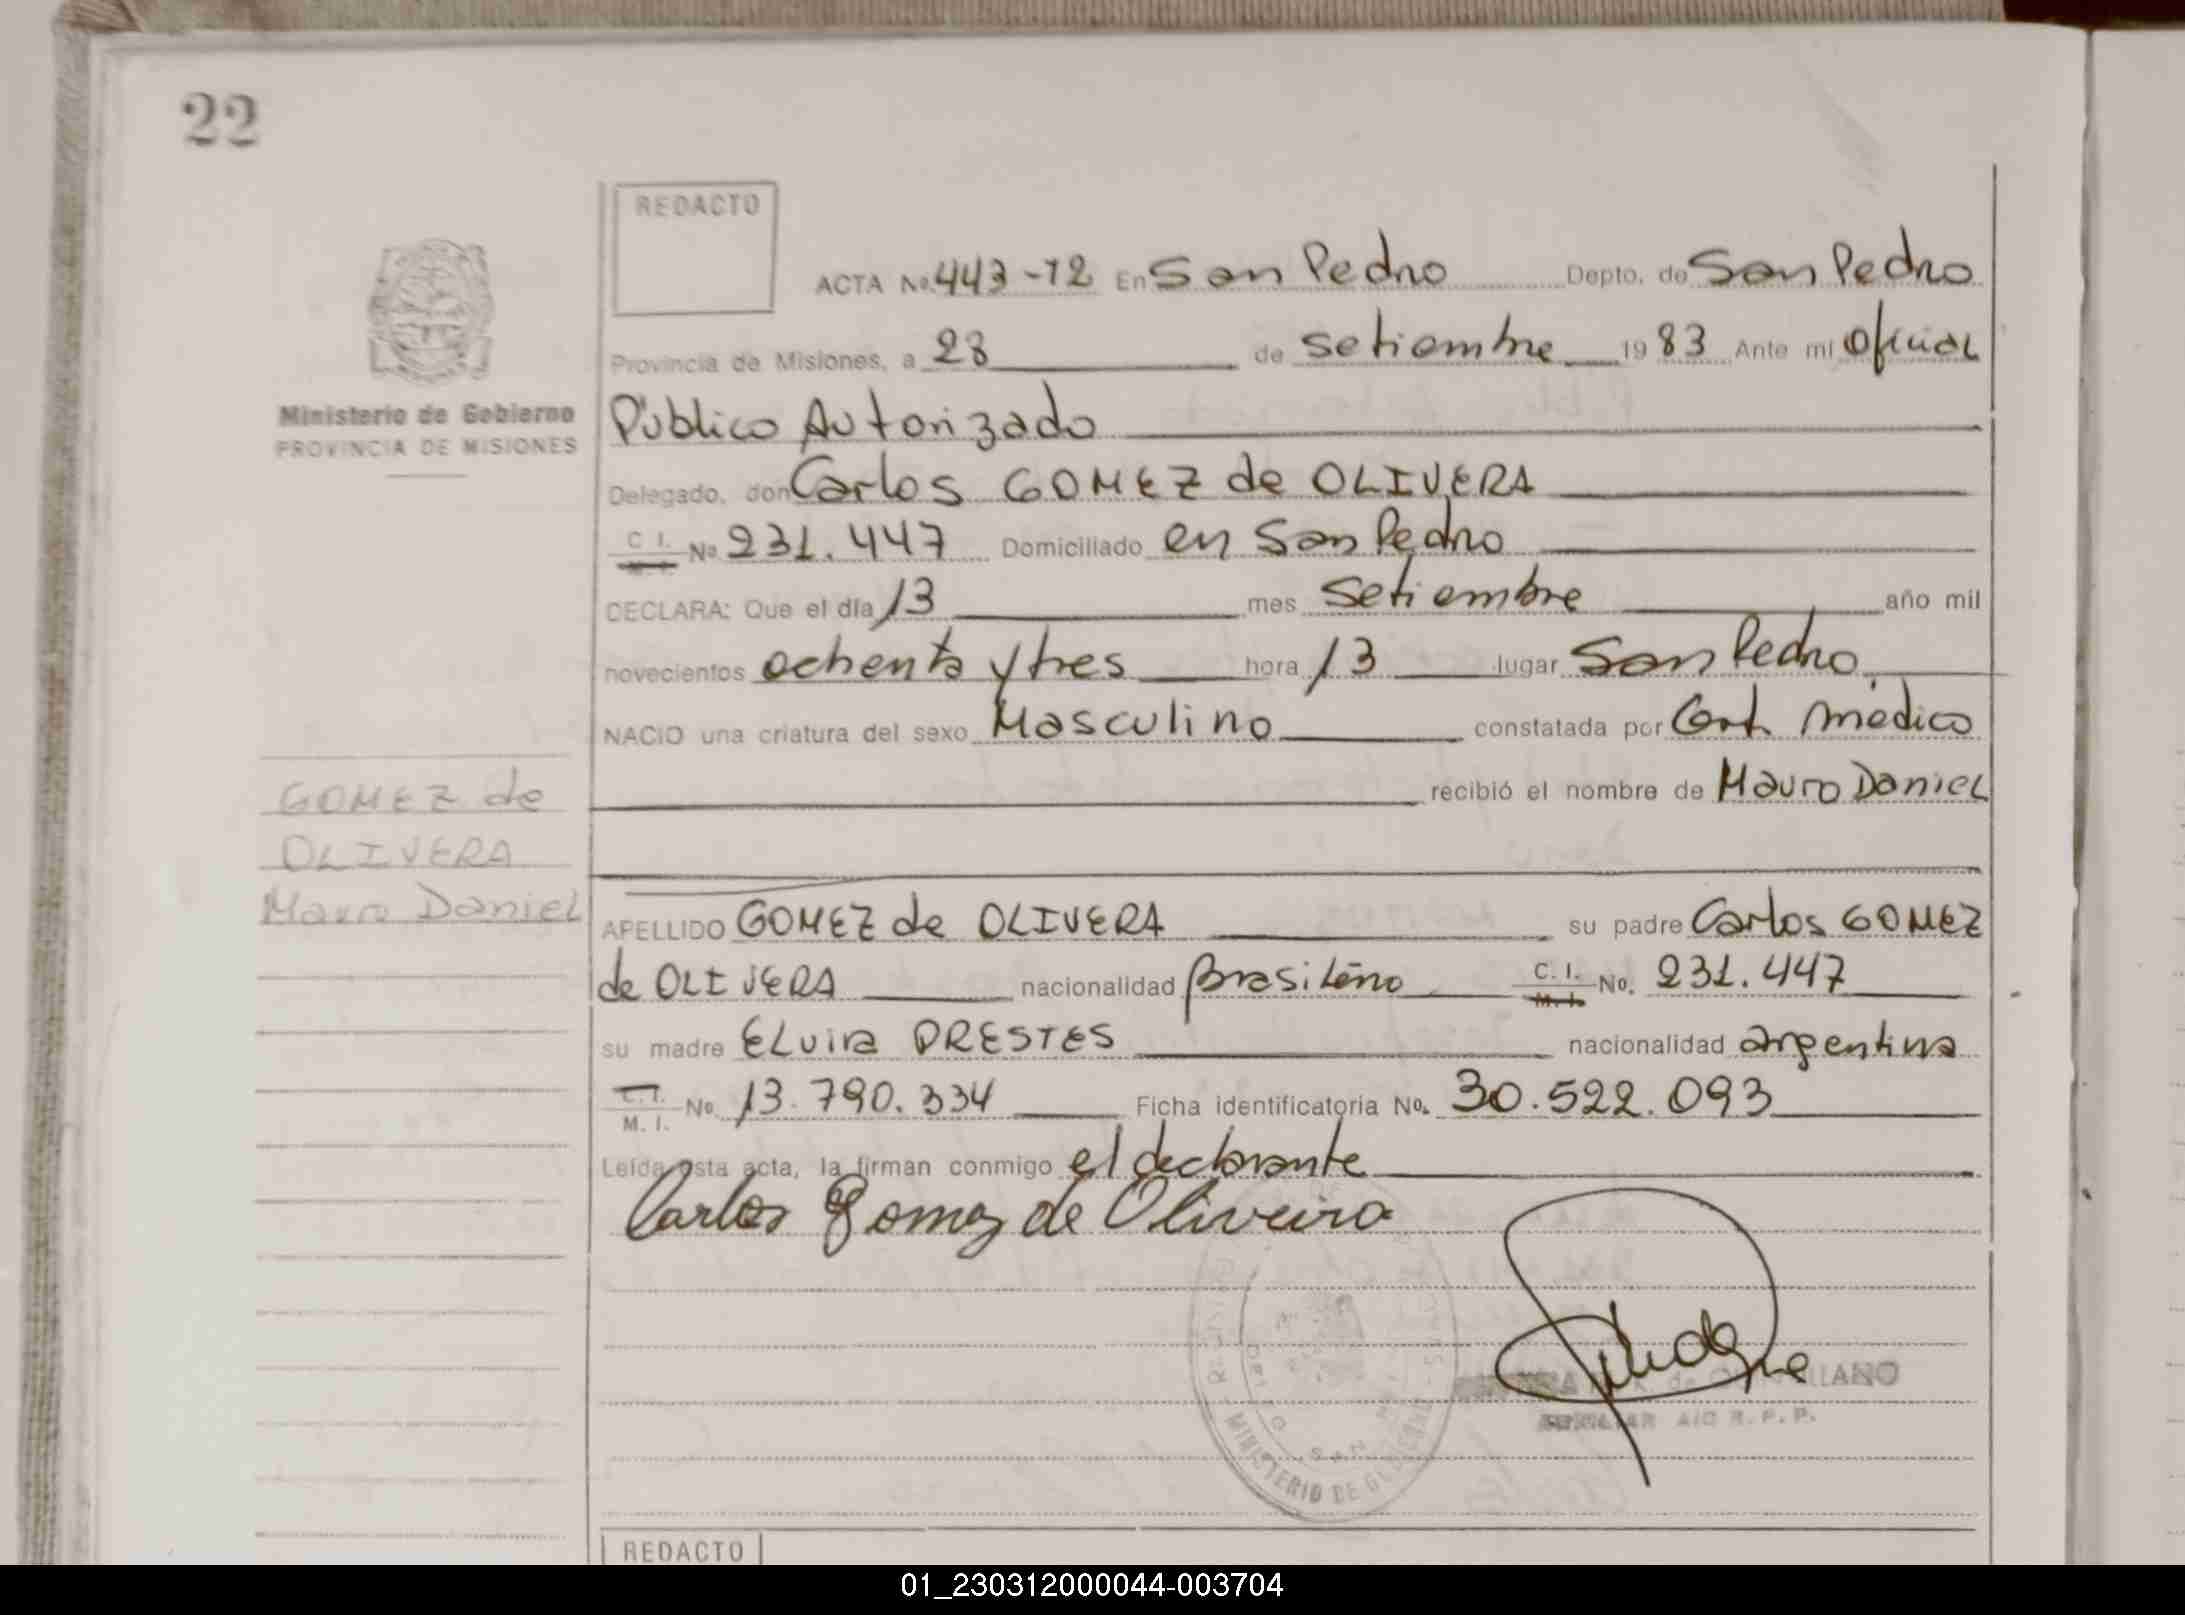 22
REDACTO
ACTA No. 443-12 En San Pedro Depto. de San Pedro
Provincia de Misiones, a 28 de setiembre 1983 Ante mí Oficial
Ministerio de Gobierno
PROVINCIA DE MISIONES
Público Autorizado
Delegado, don Carlos GOMEZ de OLIVERA
C I. M. I. No. 231.447 Domiciliado en San Pedro
DECLARA: Que el día 13 mes Setiembre año mil
novecientos ochenta y tres hora 13 lugar San Pedro
NACIO una criatura del sexo Masculino constatada por Cert. médico
recibió el nombre de Mauro Daniel
GOMEZ de
OLIVERA
Mauro Daniel
APELLIDO GOMEZ de OLIVERA su padre Carlos GOMEZ
de OLIVERA nacionalidad Brasileño C. I. M. I. No. 231.447
su madre ELvira PRESTES nacionalidad argentina
C. I. M. I. No. 13.790.334 Ficha identificatoria No. 30.522.093
Leída esta acta, la firman conmigo el declarante
Carlos Gomez de Oliveira
MINISTERIO DE
SAN
AUXILIAR A/C R. P. P.
REDACTO
01_230312000044-003704